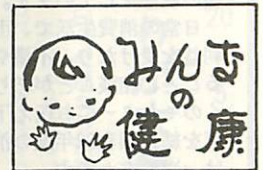 みんなの健康